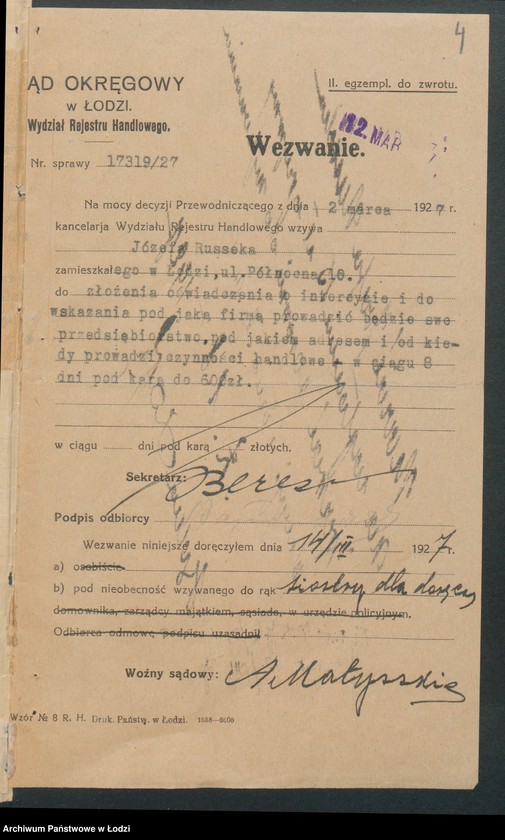 4
ĄD OKRĘGOWY
w ŁODZI.
Wydział Rejestru Handlowego.
II. egzempl. do zwrotu.
12. MAR
Wezwanie.
Nr. sprawy 17319/27
Na mocy decyzji Przewodniczącego z dnia 2 marca 1927 r.
kancelarja Wydziału Rejestru Handlowego wzywa
Józefa Russeka
zamieszkałego w Łodzi,ul.Północna 10.
do złożenia oświadczenia o intercyzie i do
wskazania pod jaką firmą prowadzić będzie swe
przedsiębiorstwo,pod jakiem adresem i od kie-
dy prowadzi czynności handlowe - w ciągu 8
dni pod karą do 600zł.
w ciągu dni pod karą złotych.
Sekretarz: Beres
Podpis odbiorcy
Wezwanie niniejsze doręczyłem dnia 14/III 1927 r.
a) osobiście
b) pod nieobecność wzywanego do rąk siostry dla doręcz
domownika, zarządcy majątkiem, sąsiada, w urzędzie policyjnym,
Odbiorca odmowę podpisu uzasadnił
Woźny sądowy: A Małyszki
Wzór № 8 R. H. Druk. Państw. w Łodzi.
Archiwum Państwowe w Łodzi